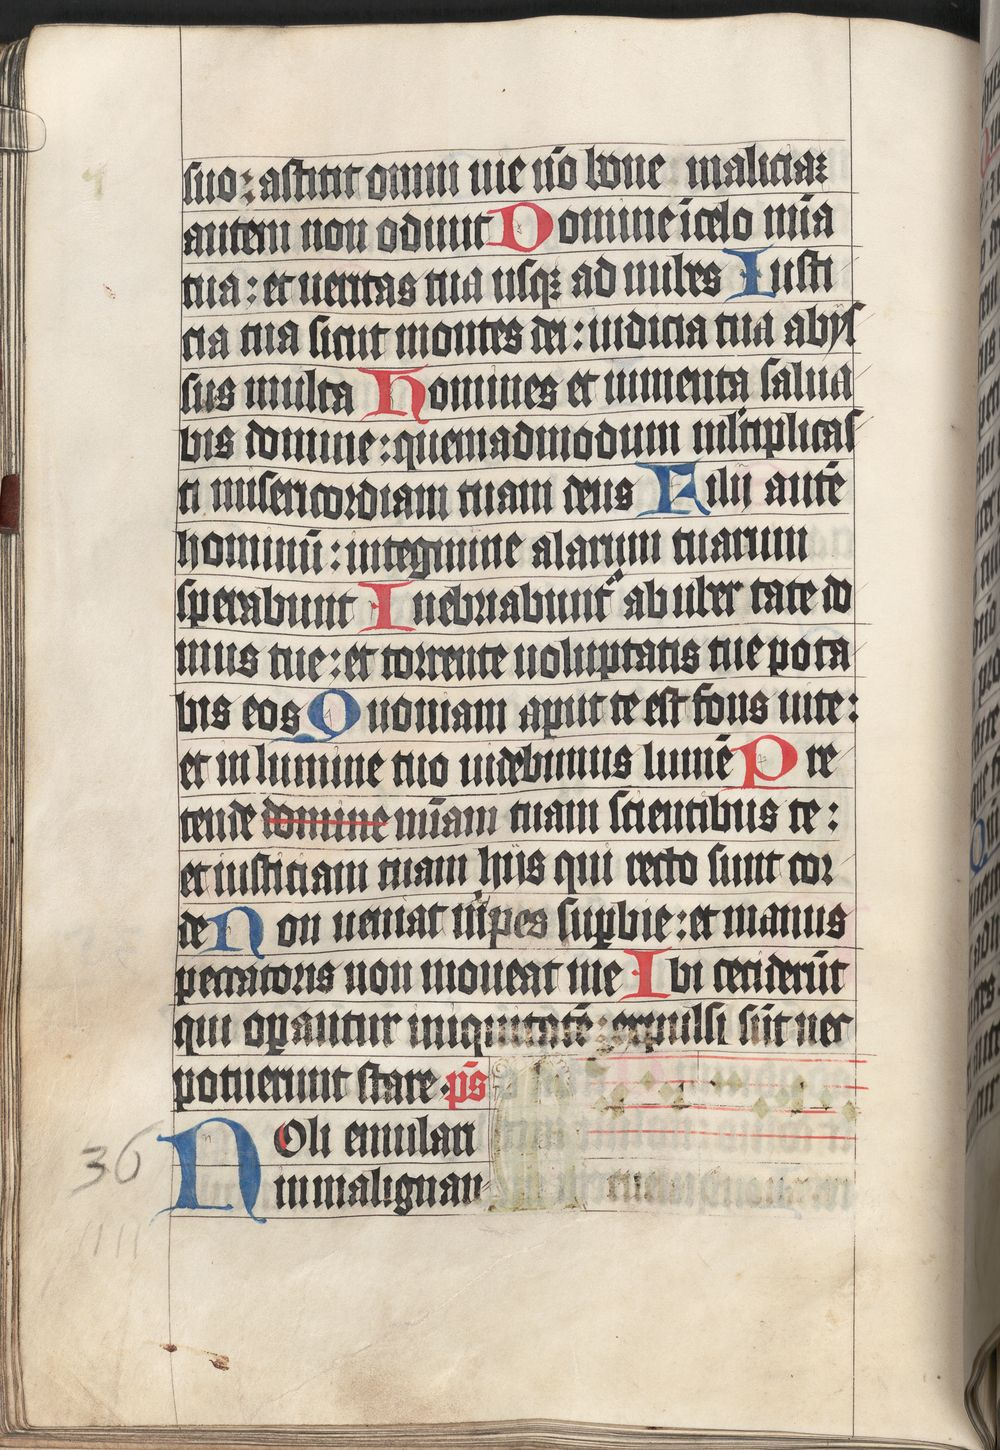 suo: astitit omni uie nō bone maliciaꝫ
autem non odiuit Domine ī celo mīa
tua: et ueritas tua usqꝫ ad nubes Iusti
cia tua sicut montes dei: iudicia tua abys
sus multa Homines et iumenta salua
bis domine: quemadmodum mltiplicas
ti misericordiam tuam deus Filij autē
hominū: in tegmine alarum tuarum
sperabunt Inebriabuntᷣ ab uber tate do
mus tue: et torrente uoluptatis tue pota
bis eos Quoniam aput te est fons uite:
et in lumine tuo uidebimus lumē Pre
tende domine mīam tuam scientibus te:
et iusticiam tuam hijs qui recto sunt cor
de Non ueniat m̄ pes suꝑbie: et manus
peccatoris non moueat me Ibi ceciderūt
qui oꝑantur iniquitatē: expulsi sūt nec
potuerunt stare. p̄s
Noli emulari
in malignan
36